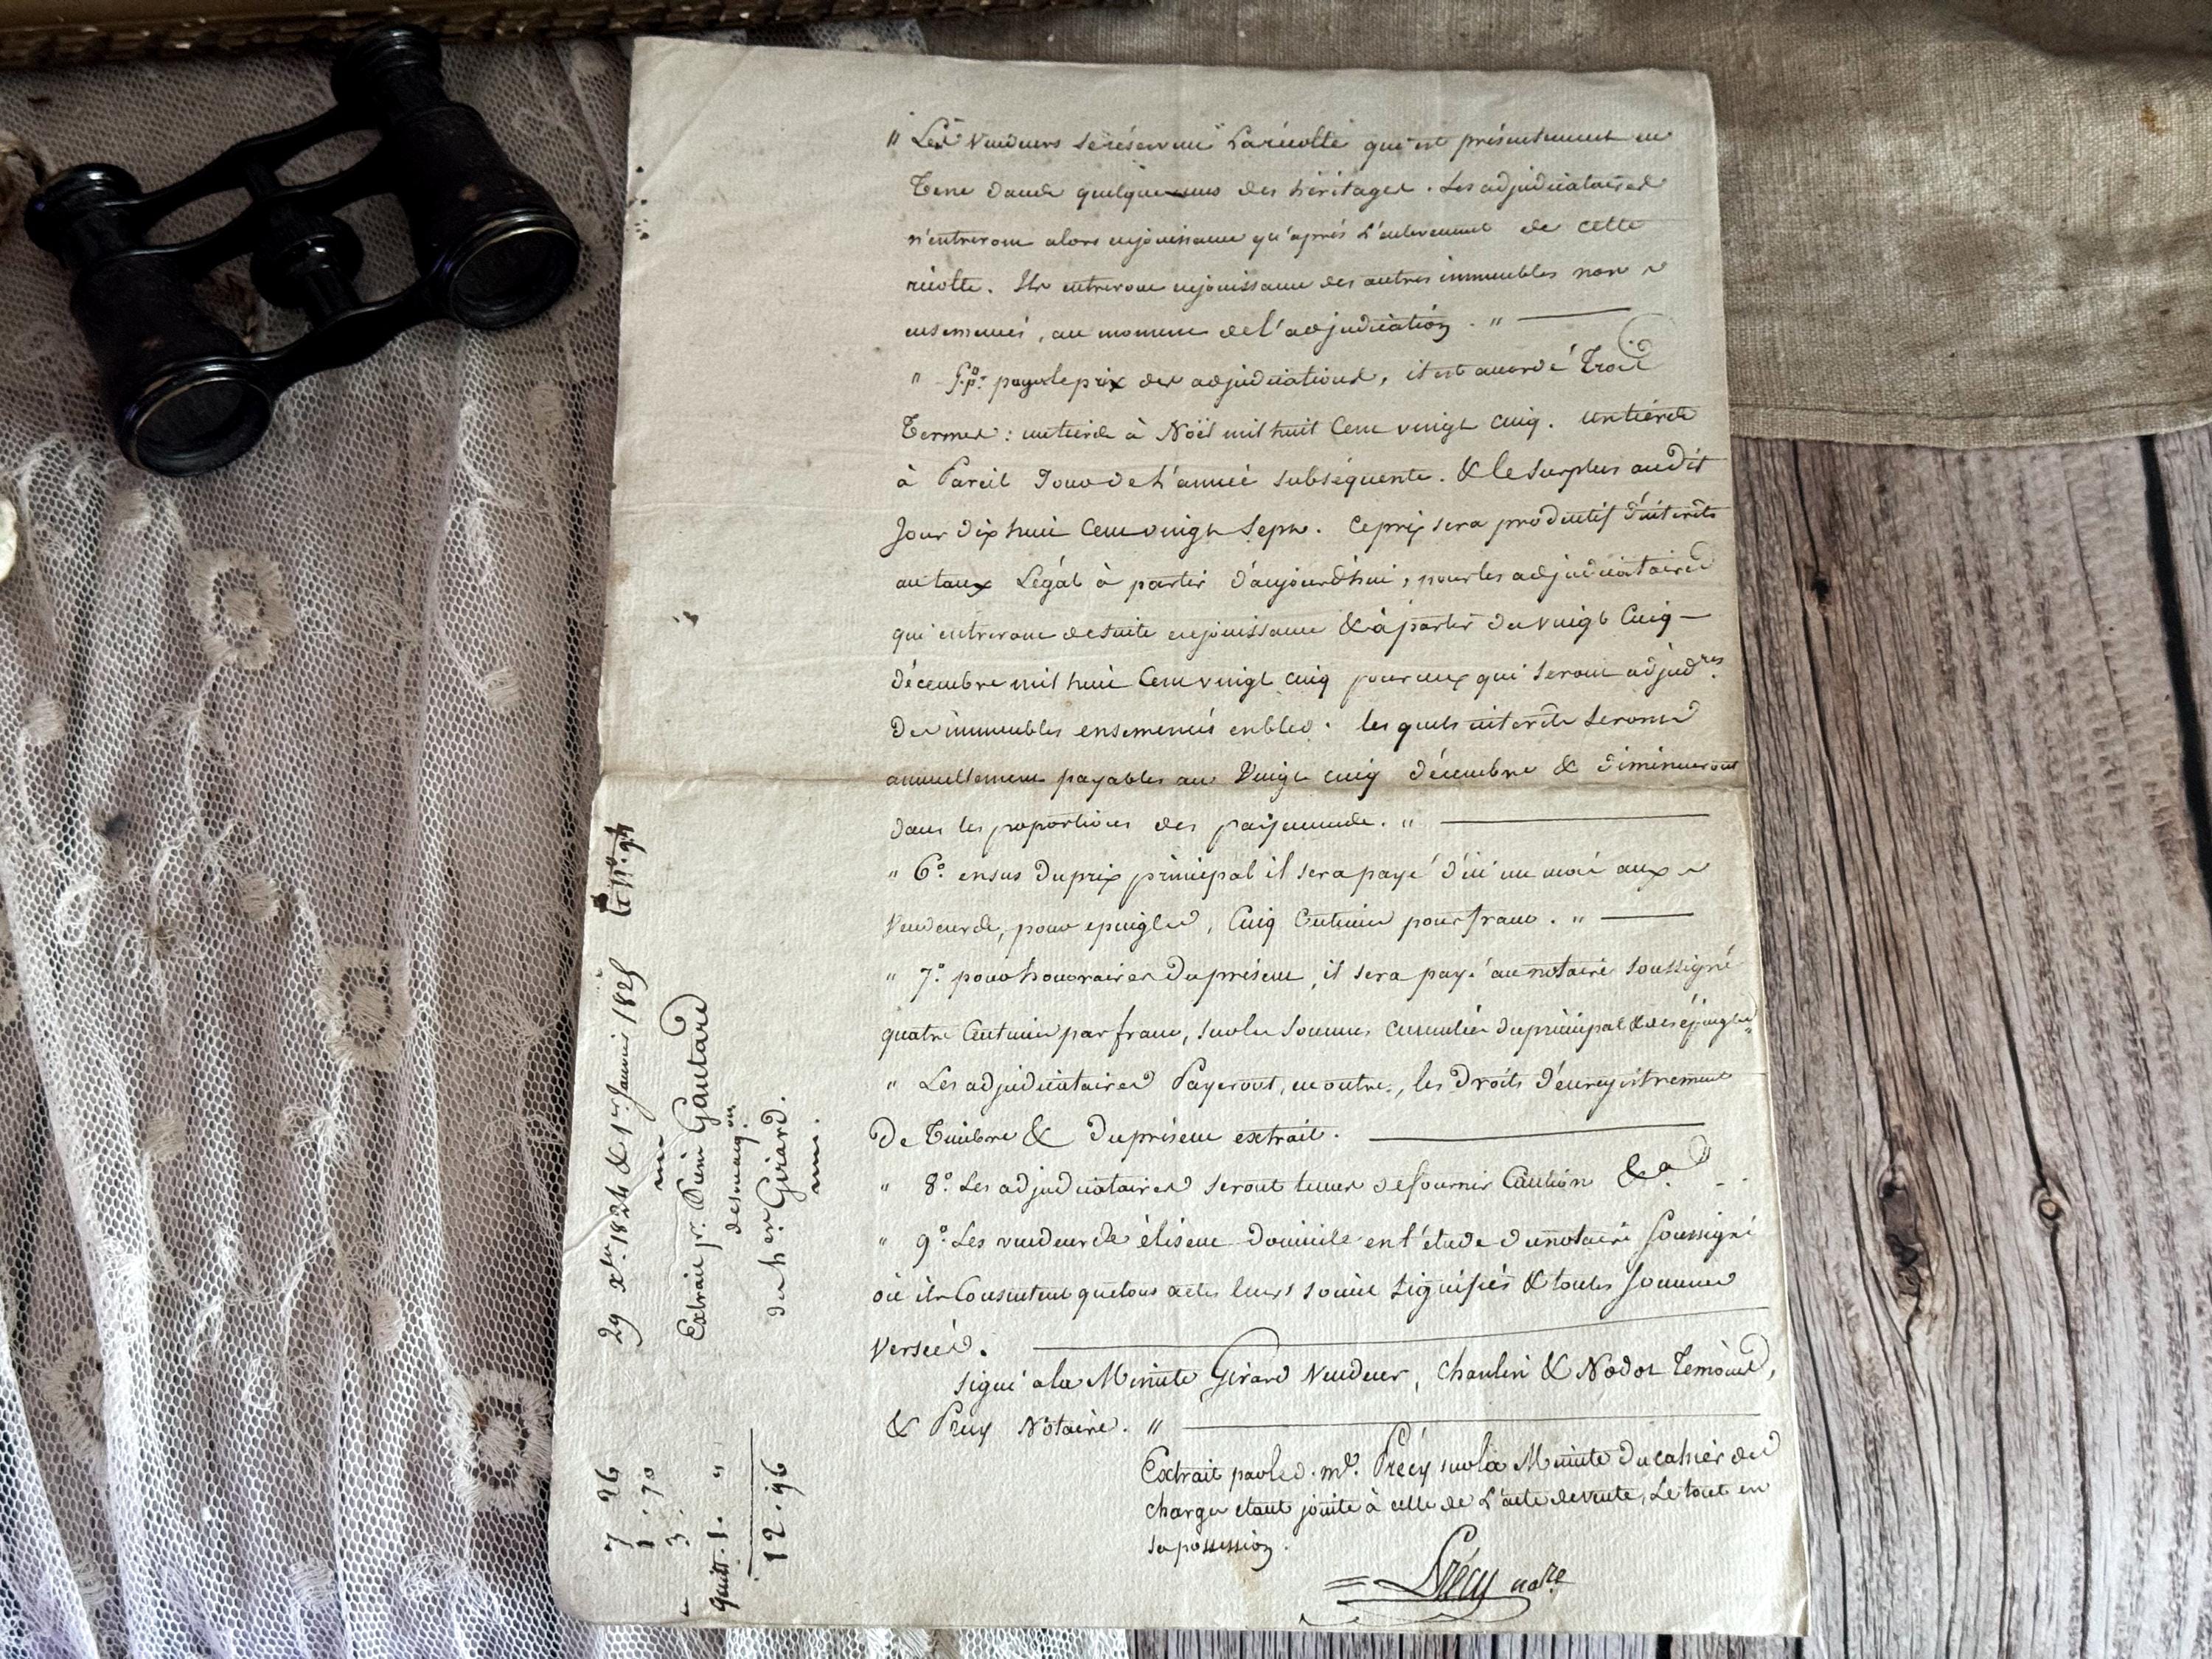 " Les vendeurs se réservent la récolte qui est présentement en
Terre dans quelques uns des héritages. Les adjudicataires
n'entreront alors en jouissance qu'après l'enlèvement de cette
récolte. Ils entreront en jouissance des autres immeubles non
ensemencés, au moment de l'adjudication. "
" 5.º pr. payer le prix des adjudications, il est accordé Trois
Termes : un tiers à Noël mil huit Cent vingt cinq. un tiers
à Pareil Jour de L'année subséquente. & le surplus audit
Jour dix huit Cent vingt Sept. Ce prix sera productif d'intérêts
au taux Légal à partir d'aujourd'hui, pour les adjudicataires
qui entreront de suite en jouissance & à partir du vingt Cinq
décembre mil huit Cent vingt cinq pour ceux qui seront adjud.res
des immeubles ensemencés en bled. les quels intérêts seront
annuellement payables au Vingt cinq décembre & diminueront
dans les proportions des payements. "
" 6.º en sus du prix principal il sera payé d'ici un mois aux
Vendeurs, pour epingles, Cinq Centimes pour franc. "
" 7.º pour honoraires du présent, il sera payé au notaire soussigné
quatre Centimes par franc, sur les sommes cumulées du principal & des épingles "
" Les adjudicataires Payeront, en outre, les Droits d'enregistrement
De Timbre & du présent extrait.
" 8.º Les adjudicataires seront tenus de fournir Caution &.a
" 9.º Les vendeurs élisent domicile en l'étude du notaire Soussigné
où ils Consentent que tous actes leurs soient signifiés & toutes Sommes
Versées.
signé a la Minute Girard Vendeur, Chaulin & Nodot Temoins,
& Précy Notaire. "
Extrait par led. me. Précy sur la Minute du cahier des
charges étant jointe à celle de L'acte de vente, Le tout en
sa possession.
Précy no.re
29 x.bre 1824 & 1.er Janvier 1825
Extrait pr. Pierre Gautard
de h er. Girard.
7 26
1. 70
3. "
quitt. 1. "
12. 96